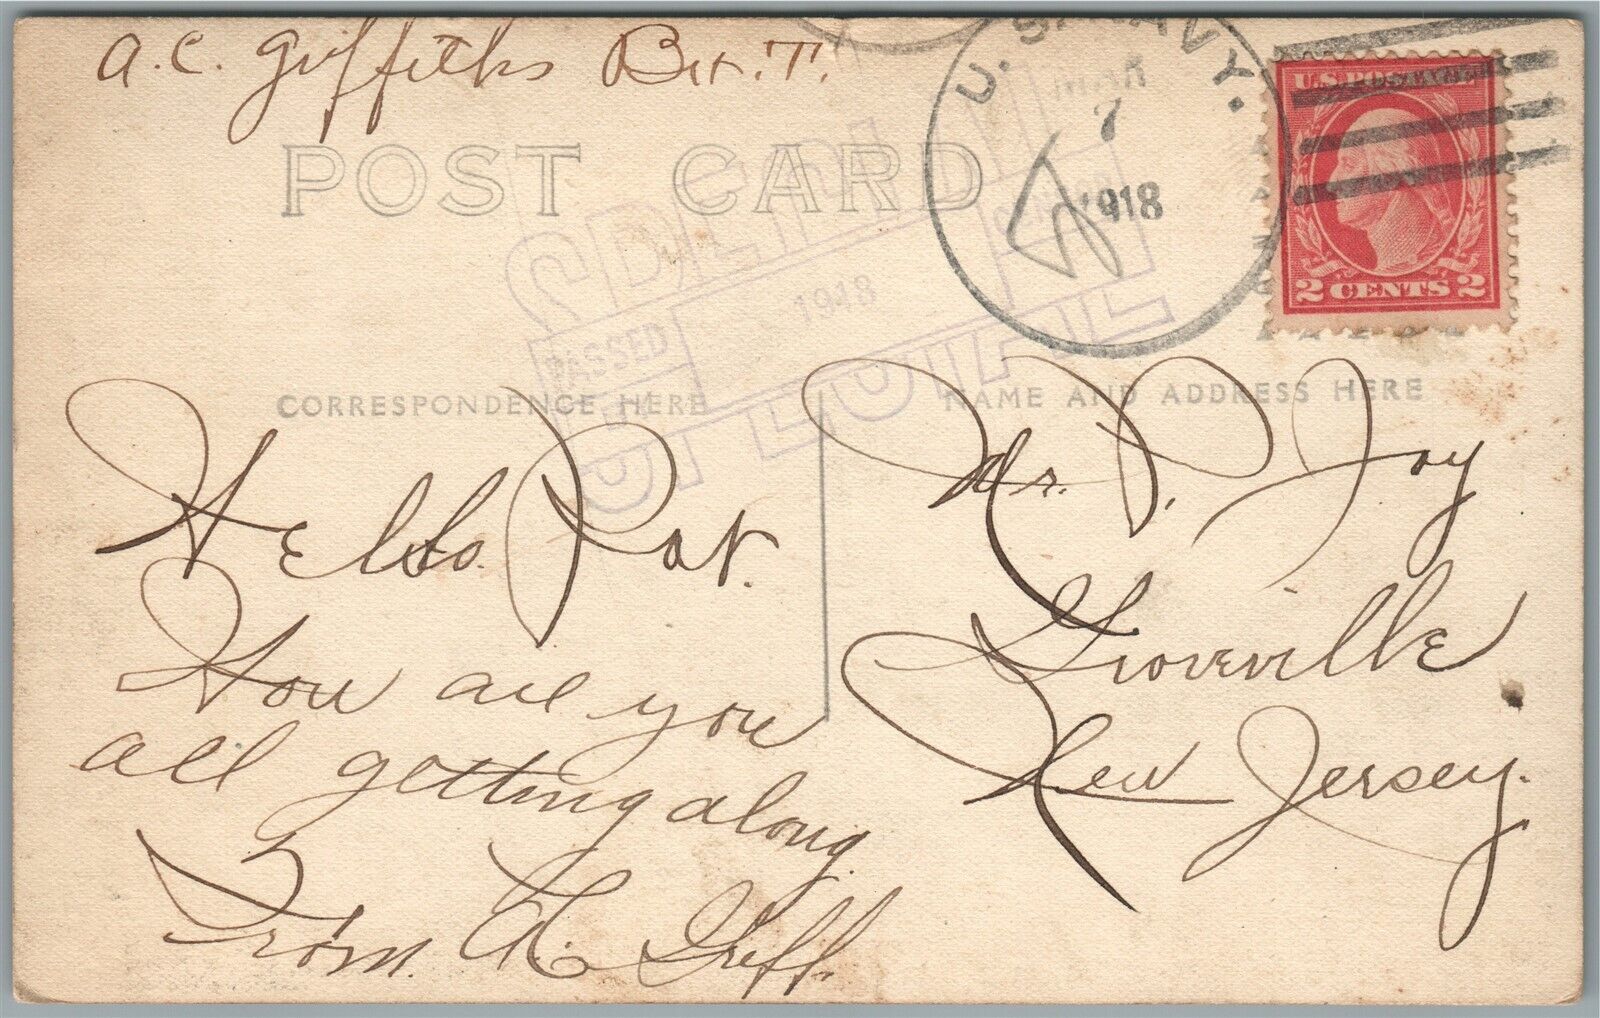 A.C. Griffiths
POST CARD
U.S. NAVY.
MAR
7
1918
U.S. POSTAGE
2 CENTS 2
PASSED
CENSOR
1918
CORRESPONDENCE HERE
NAME AND ADDRESS HERE
Hello. Pat.
How are you
all getting along.
From. A. Griff.
Mr. P. Joy
Groveville
New Jersey.